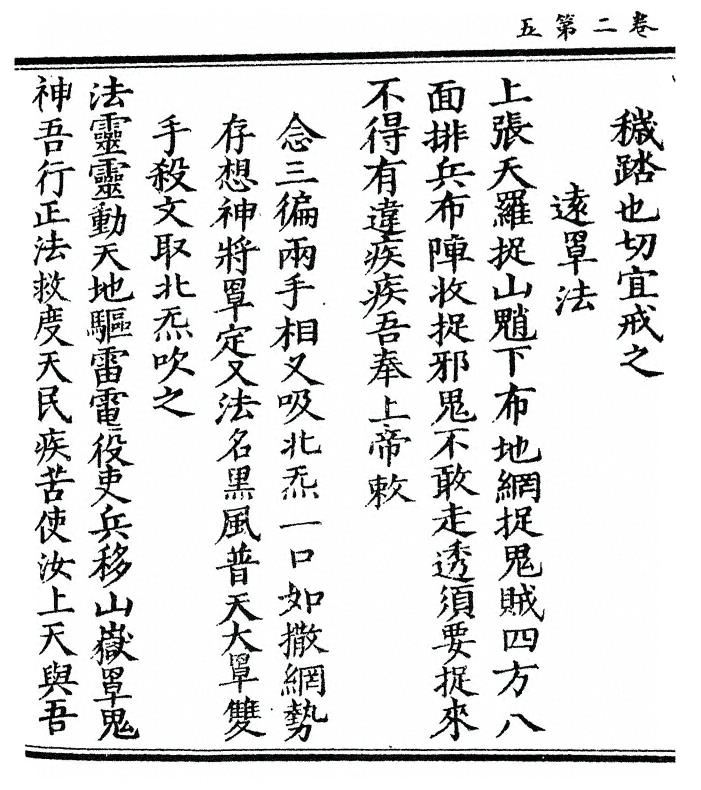 五第二卷
穢踏也切宜戒之
遠罩法
上張天羅捉山魈下布地網捉鬼賊四方八
面排兵布陣收捉邪鬼不敢走透須要捉來
不得有違疾疾吾奉上帝敕
念三徧兩手相叉吸北炁一口如撒網勢
存想神將罩定又法名黑風普天大罩雙
手殺文取北炁吹之
法靈靈動天地驅雷電役吏兵移山嶽罩鬼
神吾行正法救度天民疾苦使汝上天與吾